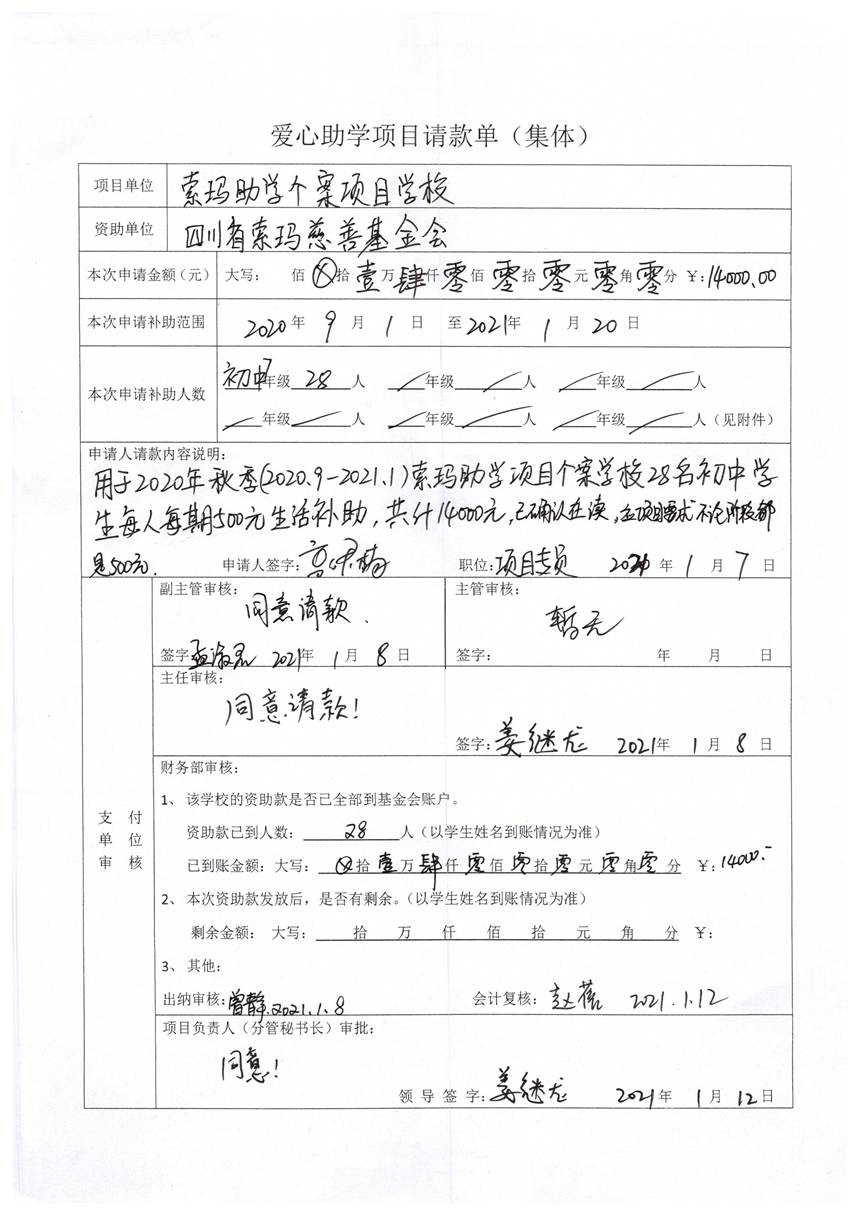 爱心助学项目请款单（集体）
项目单位 索玛助学个案项目学校
资助单位 四川省索玛慈善基金会
本次申请金额（元） 大写： 佰 ⊗拾 壹万 肆仟 零佰 零拾 零元 零角 零分 ￥：14000.00
本次申请补助范围 2020年 9月 1日 至2021年 1月 20日
本次申请补助人数 初中年级 28人 年级 人 年级 人
年级 人 年级 人 年级 人（见附件）
申请人请款内容说明：
用于2020年秋季(2020.9-2021.1)索玛助学项目个案学校28名初中学
生每人每期500元生活补助，共计14000元，已确认在读，不论阶段都
是500元.
申请人签字： 职位：项目专员 2021年 1月 7日
支付单位审核
副主管审核： 主管审核：
同意请款. 暂无
签字： 2021年 1月 8日 签字： 年 月 日
主任审核：
同意请款！
签字：姜继龙 2021年 1月 8日
财务部审核：
1、 该学校的资助款是否已全部到基金会账户。
资助款已到人数： 28 人（以学生姓名到账情况为准）
已到账金额：大写： ⊗拾 壹万 肆仟 零佰 零拾 零元 零角 零分 ￥：14000.-
2、 本次资助款发放后，是否有剩余。（以学生姓名到账情况为准）
剩余金额： 大写： 拾 万 仟 佰 拾 元 角 分 ￥：
3、 其他：
出纳审核：曾静.2021.1.8 会计复核：赵蓓 2021.1.12
项目负责人（分管秘书长）审批：
同意！
领导签字：姜继龙 2021年 1月 12日